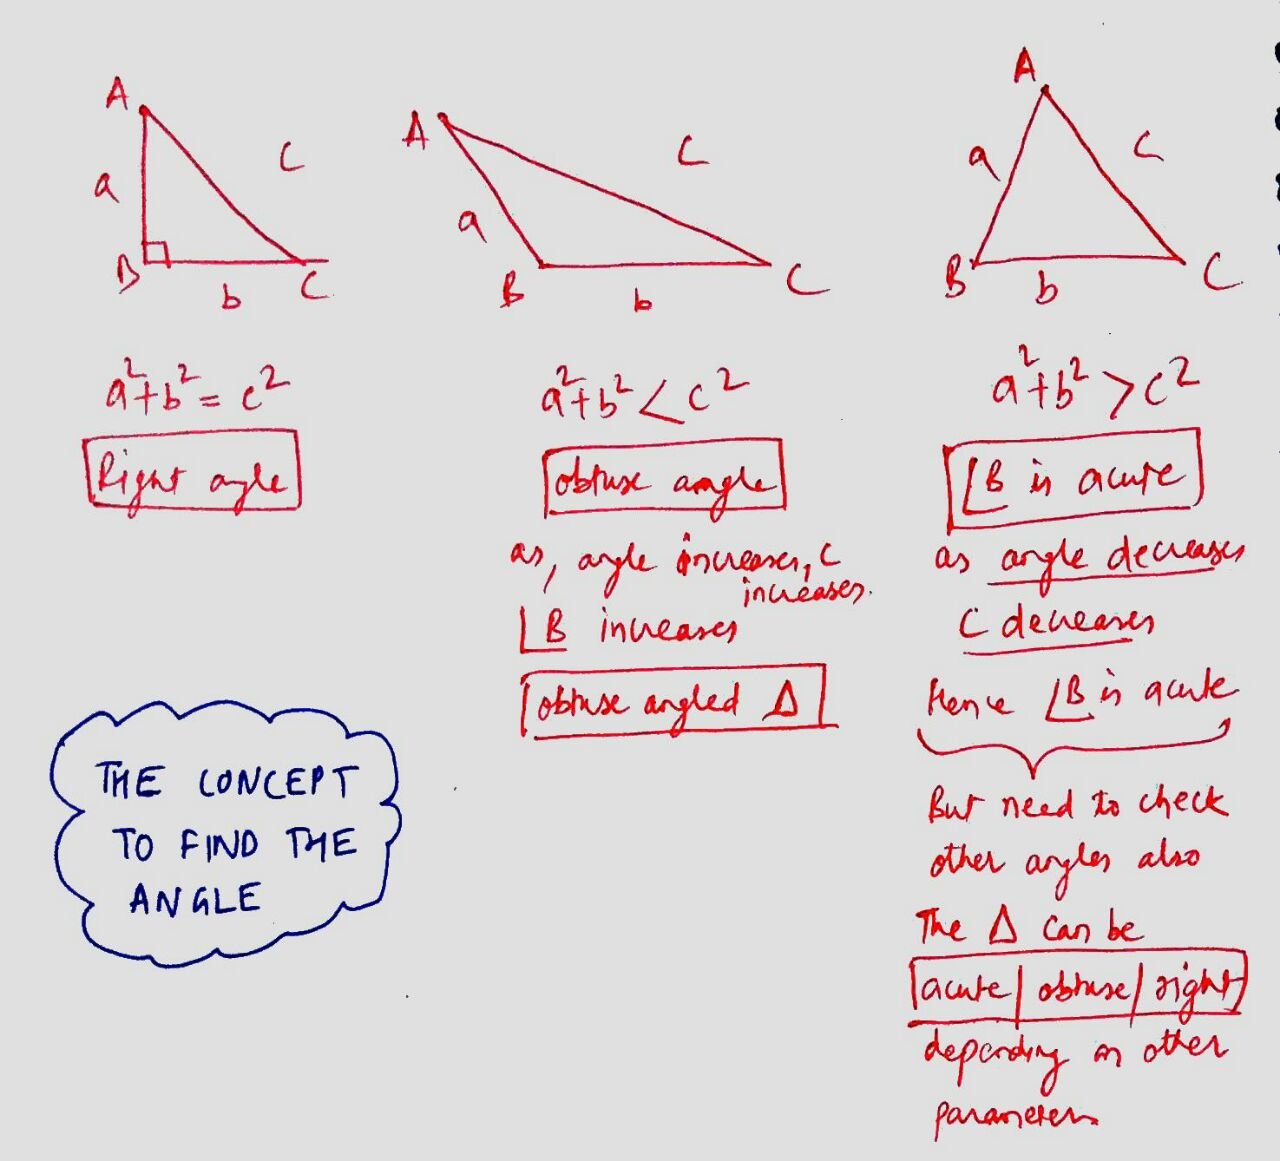 A
a
B
b
C
C
a²+b² = c²
Right angle
A
a
B
b
C
C
a²+b² < c²
obtuse angle
as, angle increases, C
increases.
∠B increases
obtuse angled Δ
A
a
B
b
C
C
a²+b² > c²
∠B is acute
as angle decreases
C decreases
Hence ∠B is acute
But need to check
other angles also
The Δ can be
acute | obtuse | right
depending on other
parameters
THE CONCEPT
TO FIND THE
ANGLE